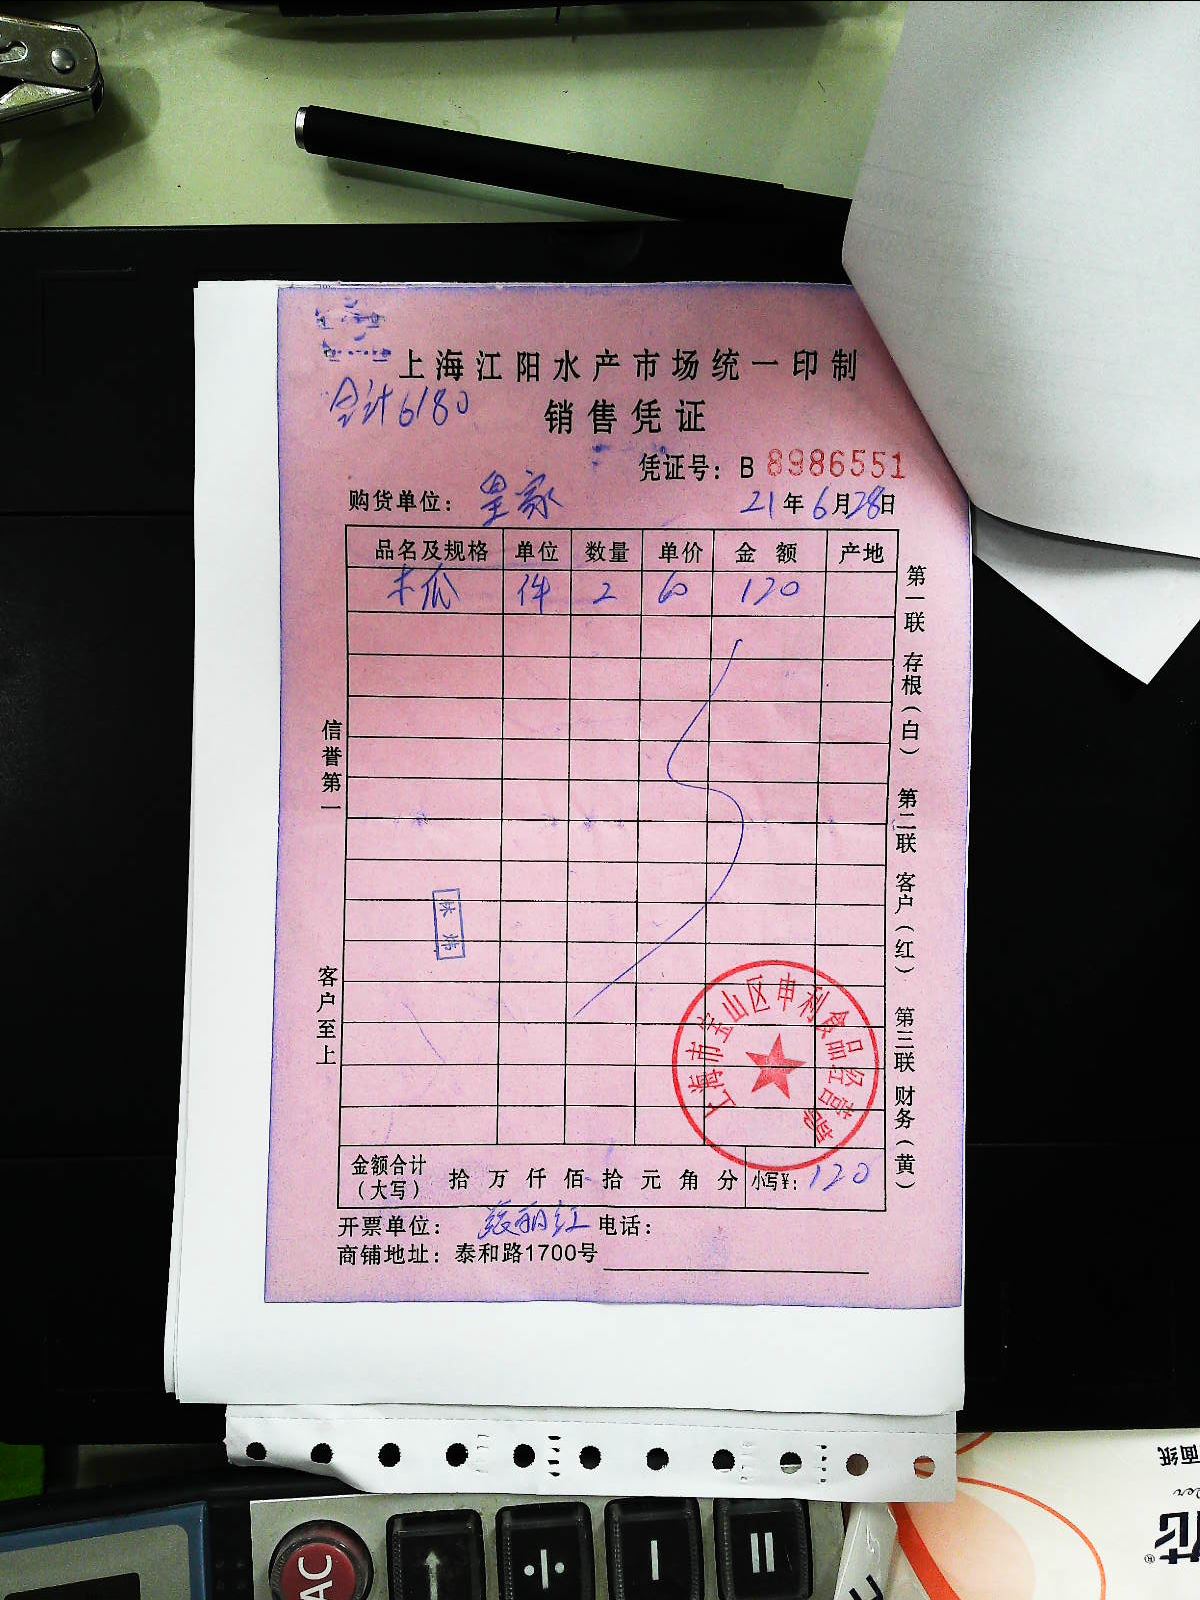 上海江阳水产市场统一印制
合计6180
销售凭证
凭证号：B 8986551
购货单位：皇家
21年6月28日
品名及规格 单位 数量 单价 金额 产地
木瓜 件 2 60 120
第一联 存根（白） 第二联 客户（红） 第三联 财务（黄）
信誉第一
客户至上
上海市宝山区申利食品经营部
金额合计（大写） 拾 万 仟 佰 拾 元 角 分 小写¥：120
开票单位：张丽红 电话：
商铺地址：泰和路1700号
面纸
AC ↑ ÷ − =